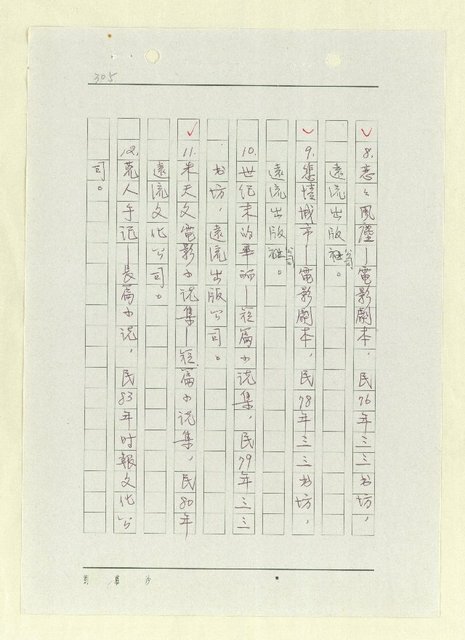 305
8.恋々風塵—電影劇本，民76年三三书坊，
遠流出版公司。
9.悲情城市—電影劇本，民78年三三书坊，
遠流出版公司。
10.世紀末的華丽—短篇小说集，民79年三三
书坊，遠流出版公司。
11.朱天文電影小说集—短篇小说集，民80年
遠流文化公司。
12.荒人手记—長篇小说，民83年时報文化公
司。